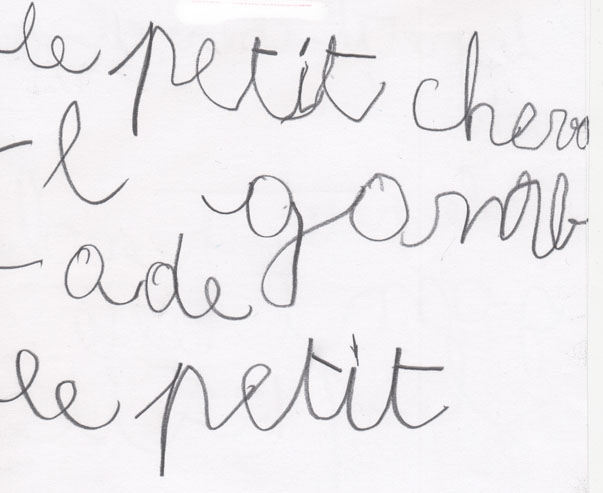 le petit cheva
-l gamb
-ade
le petit